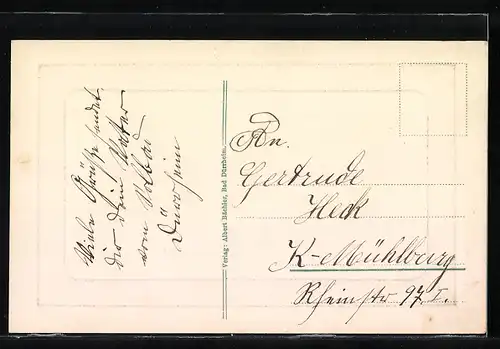 Viele Grüße sendet
dir dein Vater
vom Solbad
Dürrheim
Verlag: Albert Bächler, Bad Dürrheim.
An.
Gertrude
Heck
K-Mühlburg
Rheinstr 97. I.